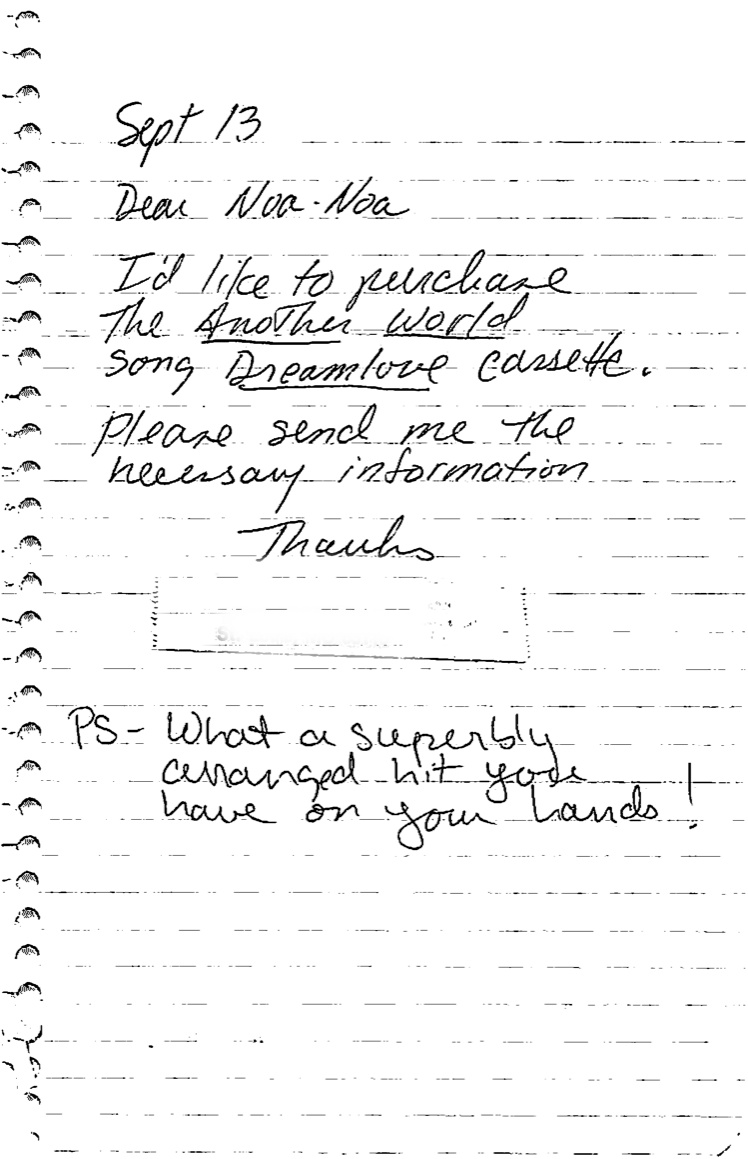 Sept 13
Dear Noa-Noa
I'd like to purchase
The Another World
song Dreamlove cassette.
Please send me the
necessary information
Thanks
PS- What a superbly
arranged hit you
have on your hands!